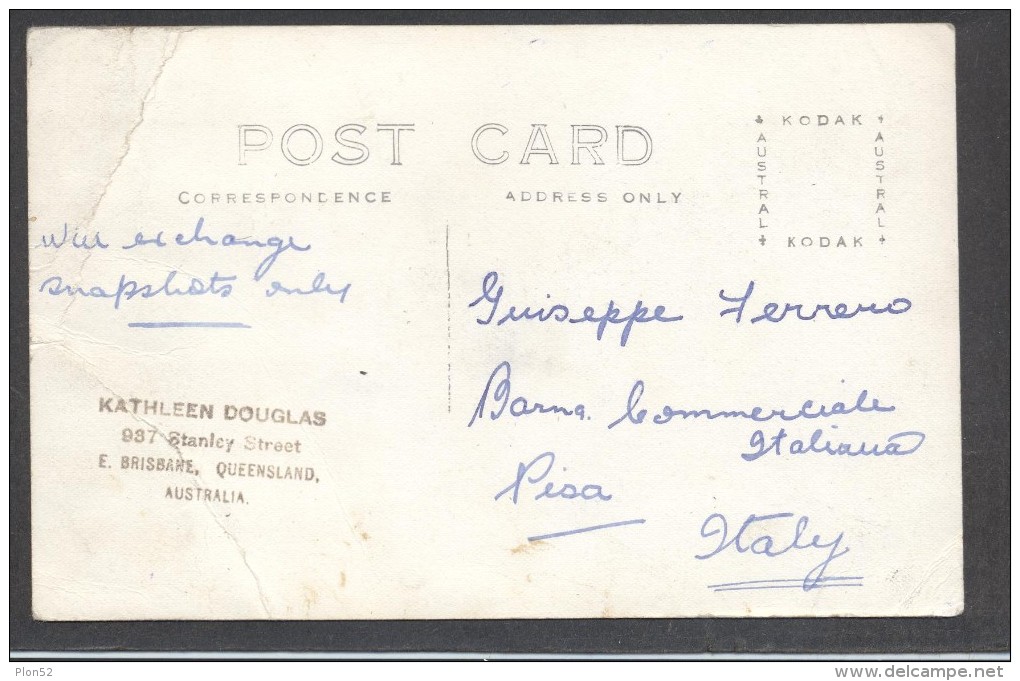 POST CARD
CORRESPONDENCE
ADDRESS ONLY
KODAK
AUSTRAL
AUSTRAL
KODAK
Will exchange
snapshots only
KATHLEEN DOUGLAS
937 Stanley Street
E. BRISBANE, QUEENSLAND,
AUSTRALIA.
Guiseppe Ferrero
Barna. Commerciale
Italiana
Pisa
Italy
Plon52
www.delcampe.net